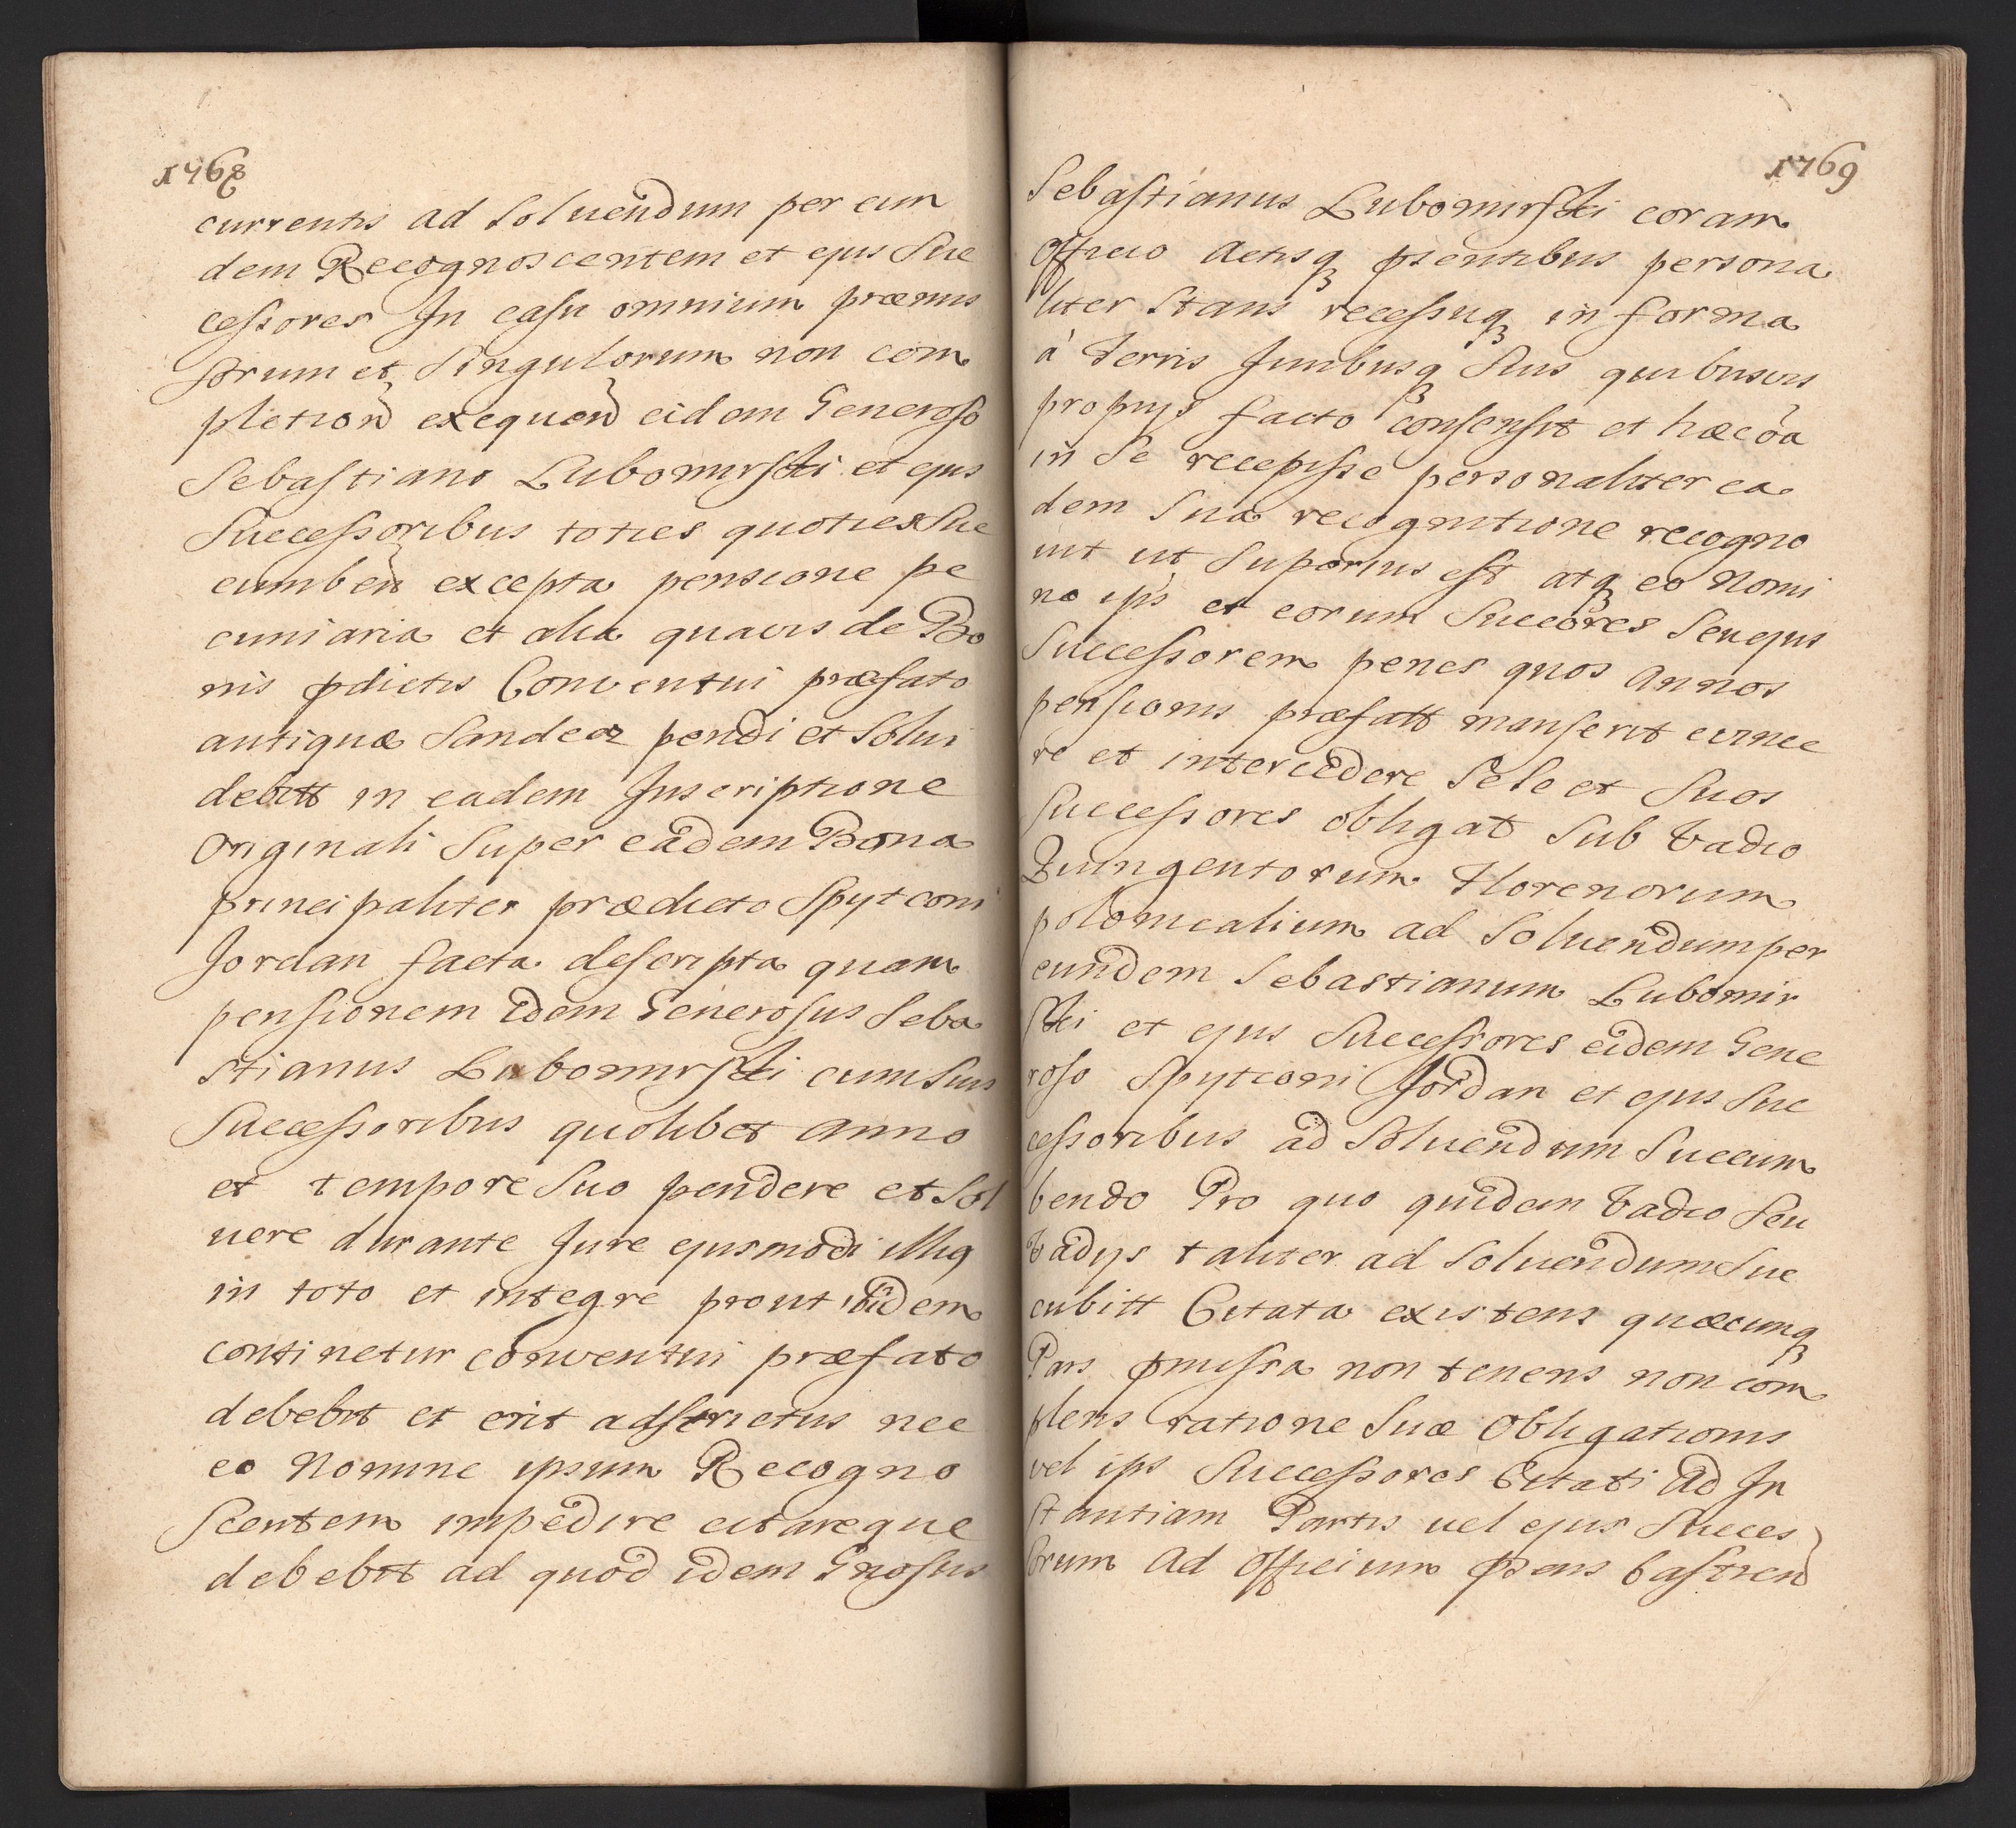 1768
currentis ad Soluendum per eun
dem Recognoscentem et ejus Suc
cessores In casu omnium præmis
sorum et Singulorum non com
pletion exequen eidem Generoso
Sebastiano Lubomirski et ejus
Successoribus toties quoties Suc
cumben excepta pensione pe
cuniaria et alia quavis de Bo
nis pdictis Conventui præfato
antiquæ Sandecz pendi et Solui
debitt in eadem Inscriptione
Originali Super eadem Bona
principaliter prædicto Spytconi
Jordan facta descripta quam
pensionem idem Generosus Seba
stianus Lubomirski cum Suis
Successoribus quolibet anno
et tempore Suo pendere et Sol
uere durante Jure ejusmodi illiq
in toto et integre prout ibidem
continetur conventui præfato
debebit et erit adstrictus nec
eo Nomine ipsum Recogno
Scentem impedire citareque
debebit ad quod idem Gnosus
1769
Sebastianus Lubomirski coram
Officio Actisq psentibus persona
liter Stans recessuq in forma
à Terris Juribusq Suis quibusvis
proprijs facto consensit et hæc oa
in Se recepisse personaliter ea
dem Sua recognitione recogno
uit ut Superius est atq eo Nomi
ne ips et eorum Succores Seu ejus
Successorem penes quos Annos
pensionis præfatt manserit evince
re et intercedere Sese et Suos
Successores obligat Sub Vadio
Quingentorum Florenorum
polonicalium ad Soluendum per
eundem Sebastianum Lubomir
ski et ejus Successores eidem Gene
roso Spytconi Jordan et ejus Suc
cessoribus ad Soluendum Succum
bendo Pro quo quidem Vadio Seu
Vadijs taliter ad Soluendum Suc
cubitt Citata existens quæcunq
Pars pmissa non tenens non com
plens ratione Suæ Obligationis
vel ips Successores Citati Ad In
stantiam Partis uel ejus Succes
sorum Ad Officium psens Castren